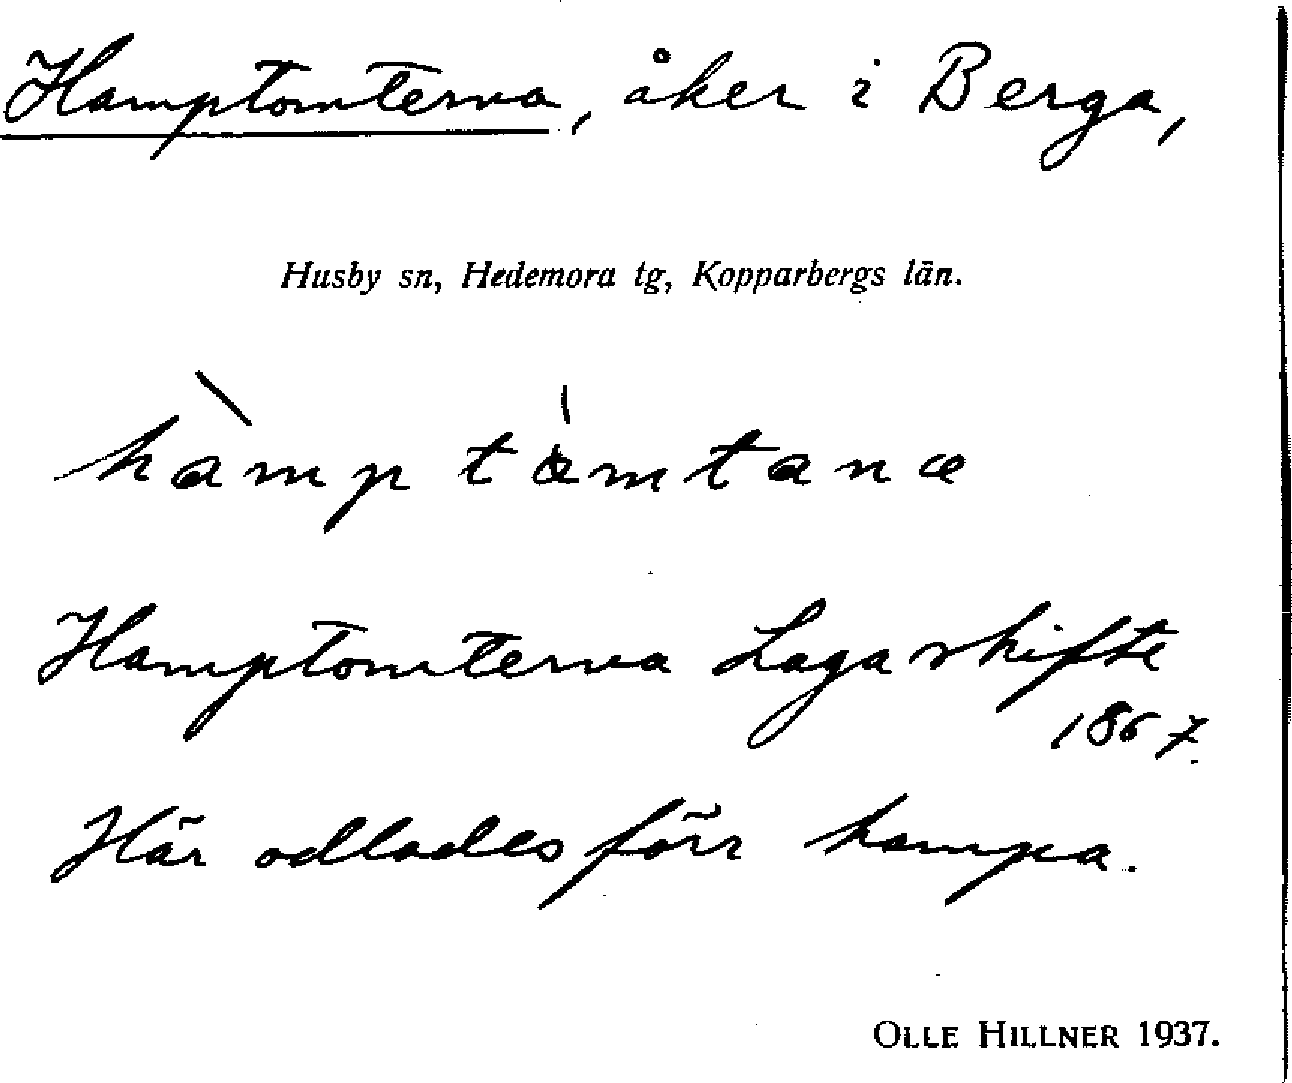 Hamptomterna, åker i Berga,
Husby sn, Hedemora tg, Kopparbergs län.
Hamptomterna Laga skifte
1867.
Här odlades förr hampa.
OLLE HILLNER 1937.